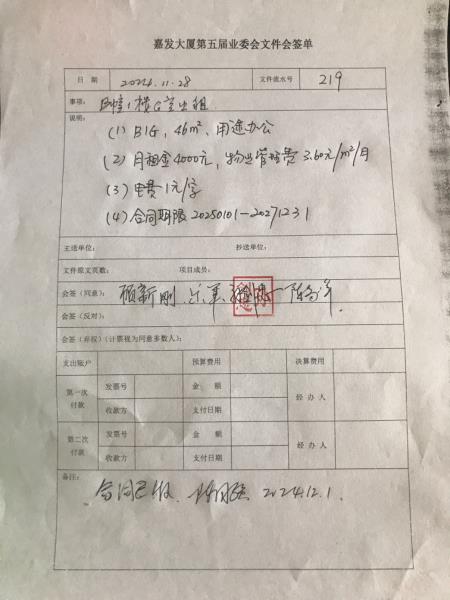 嘉发大厦第五届业委会文件会签单
日期 2024.11.28 文件流水号 219
事项： B幢1楼G室出租
说明：
(1) B1G, 46m², 用途办公
(2) 月租金4000元, 物业管理费 3.60元/m²/月
(3) 电费1元/字
(4) 合同期限 20250101-20271231
主送单位： 抄送单位：
文件原文页数： 项目成员：
会签（同意）： 顾新刚、
会签（反对）：
会签（弃权）（计票视为同意多数人）：
支出账户 预算费用 决算费用
第一次付款 发票号 金额 经办人
收款方 支付日期
第二次付款 发票号 金额 经办人
收款方 支付日期
备注：
合同已收、 2024.12.1.